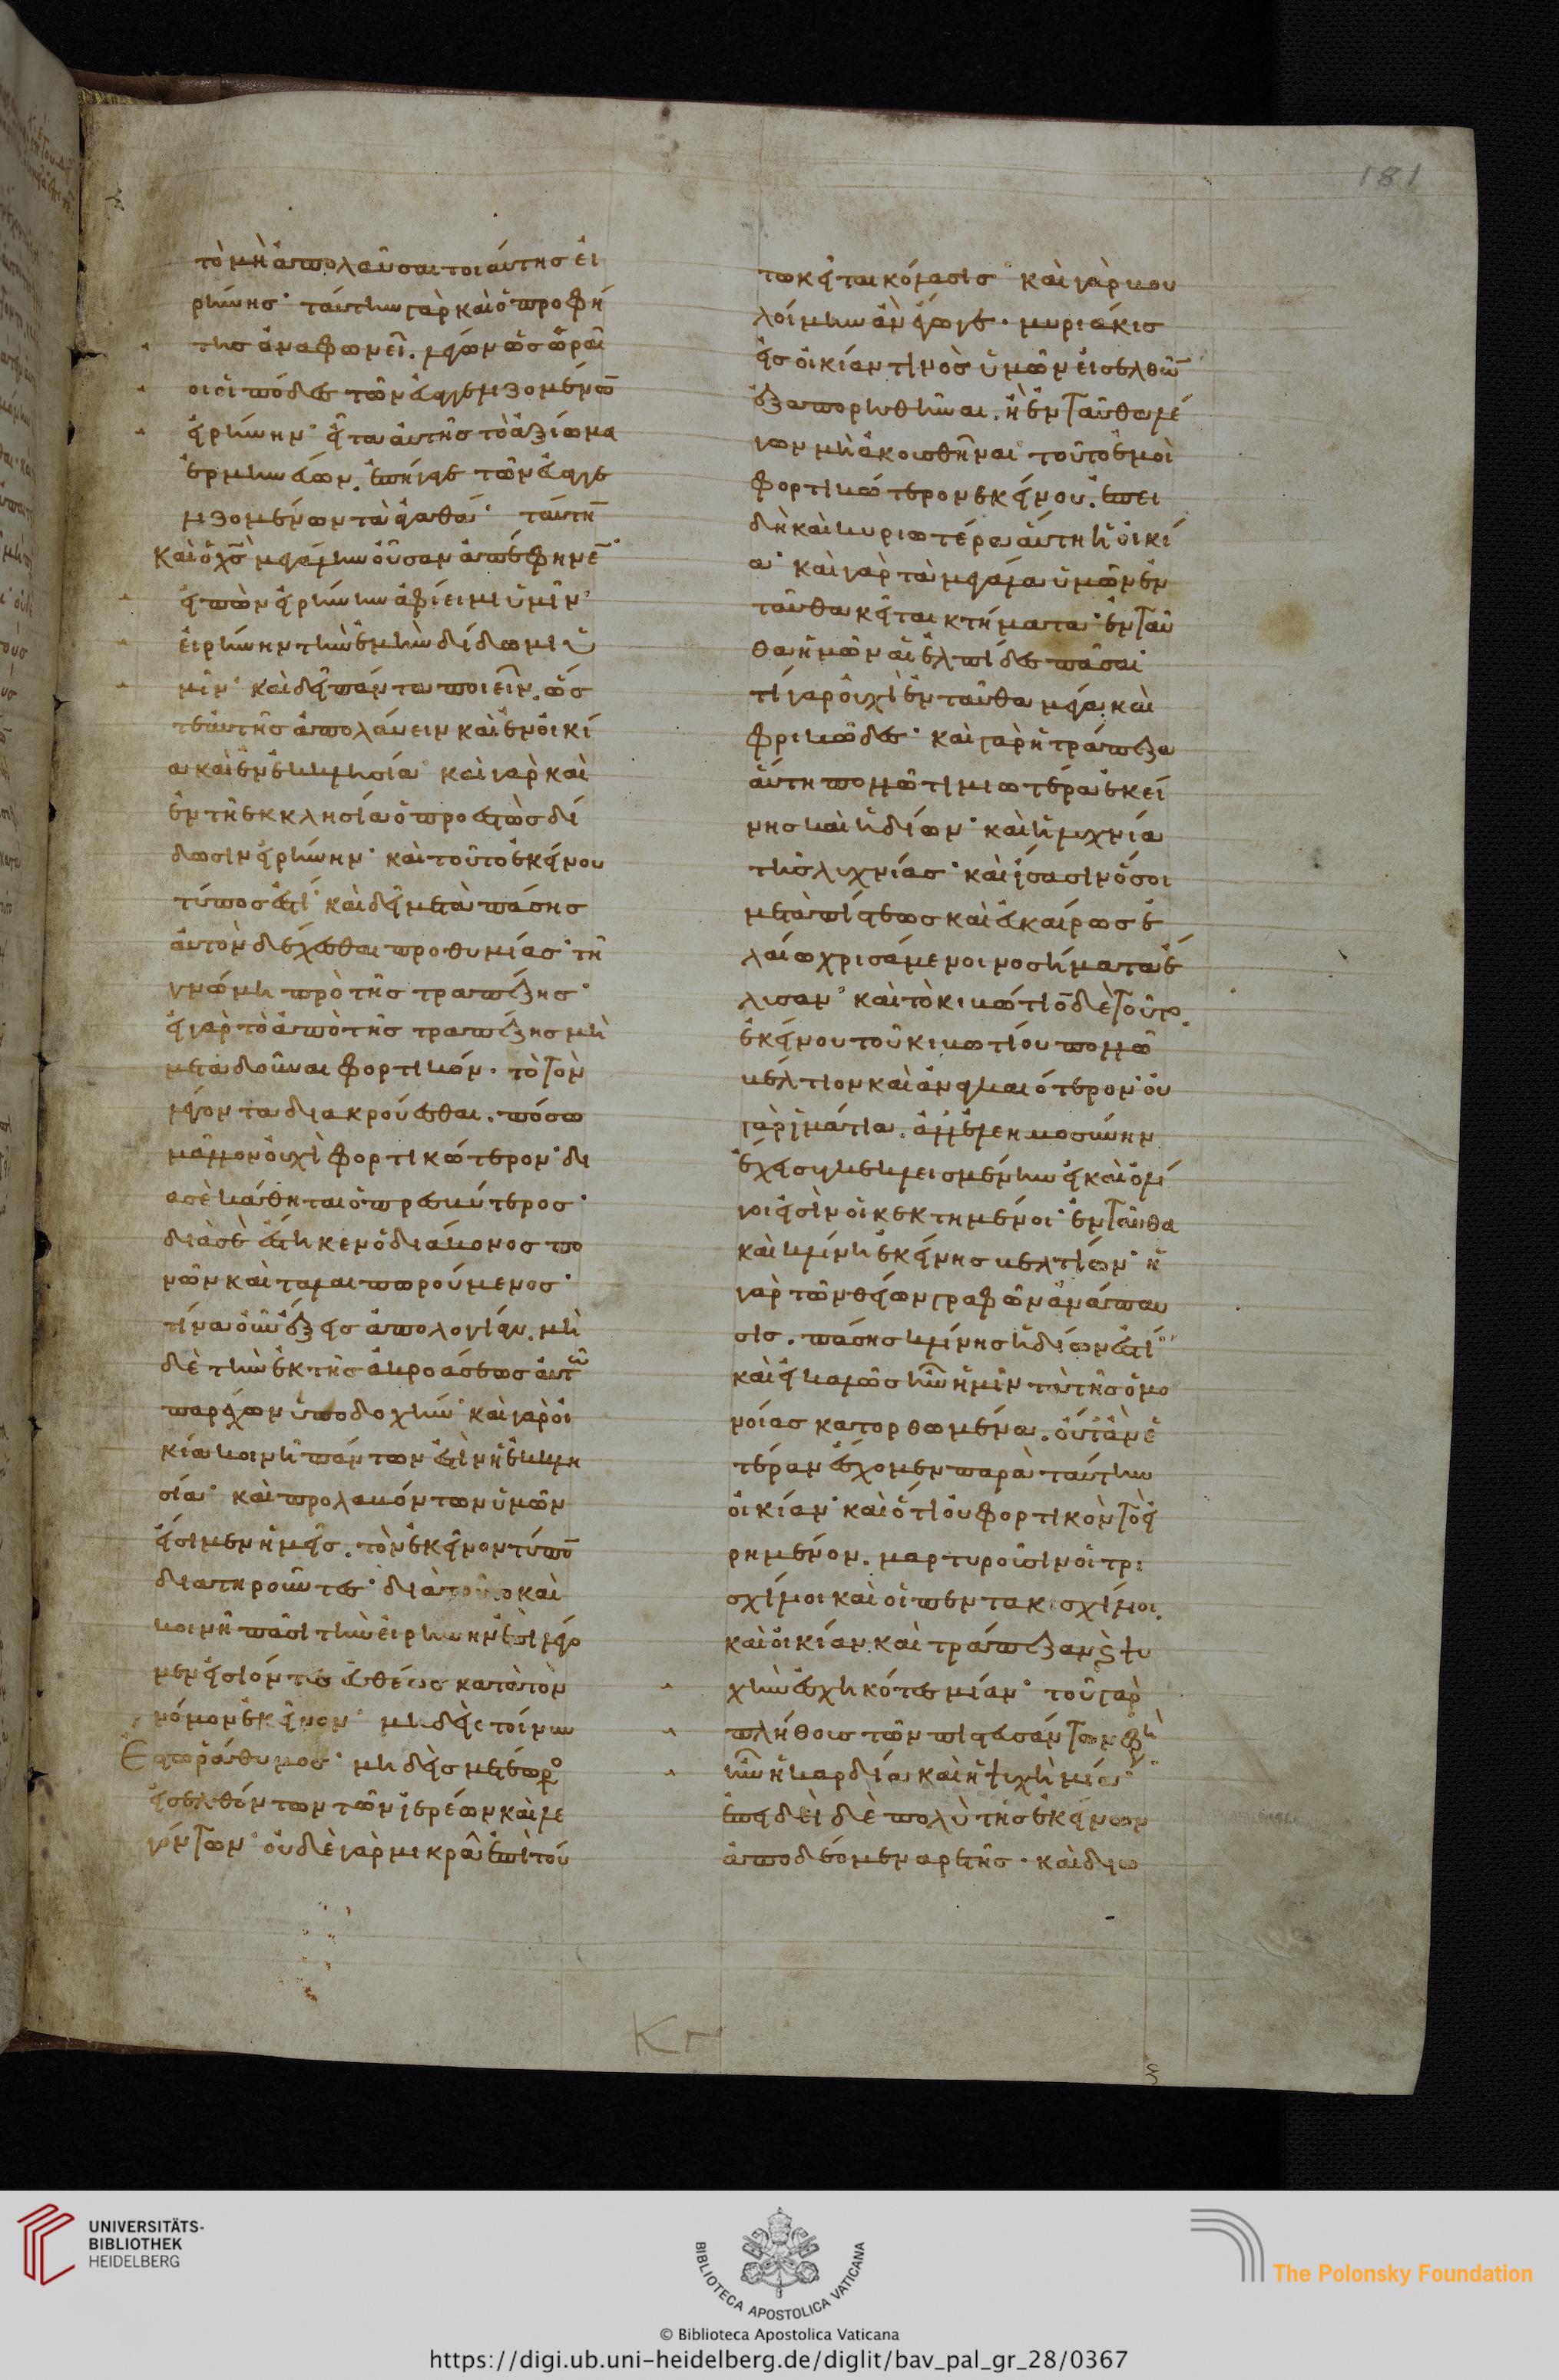 τὸ μὴ ἀπολαῦσαι τοιαύτης εἰ
ρήνης· ταύτην γὰρ καὶ ὁ προφή
της ἀναφωνεῖ. λέγων ὡς ὡραῖ
οι οἱ πόδες τῶν εὐαγγελιζομένω̄
εἰρήνην· εἶτα αὐτῆς τὸ ἀξίωμα
ἑρμηνεύων. ἐπήγαγε τῶν εὐαγγε
λιζομένων τὰ ἀγαθά· ταύτη̄
καὶ ὁ χ̅ς̅ μεγάλην οὖσαν ἀπέφηνε̄·
εἰπὼν εἰρήνην ἀφίειμι ὑμῖν·
εἰρήνην τὴν ἐμὴν δίδωμι ὑ
μῖν· καὶ δεῖ πάντα ποιεῖν. ὥσ
τε αὐτῆς ἀπολαύειν καὶ ἐν οἰκί
α καὶ ἐν ἐκκλησία· καὶ γὰρ καὶ
ἐν τῆ ἐκκλησία ὁ προεστὼς δί
δωσιν εἰρήνην· καὶ τοῦτο ἐκείνου
τύπος ἐστί· καὶ δεῖ μετὰ πάσης
αὐτὸν δέχεσθαι προθυμίας· τῆ
γνώμη πρὸ τῆς τραπέζης·
εἰ γὰρ τὸ ἀπὸ τῆς τραπέζης μὴ
μεταδοῦναι φορτικόν· τὸ τὸν
λέγοντα διακρούεσθαι. πόσω
μᾶλλον οὐχὶ φορτικώτερον· δι
α σὲ κάθηται ὁ πρεσβύτερος·
διὰ σὲ ἕστηκεν ὁ διάκονος πο
νῶν καὶ ταλαιπωρούμενος·
τίνα οὖν ἕξεις ἀπολογίαν. μη
δὲ τὴν ἐκ τῆς ἀκροάσεως αὐτῶ
παρέχων ὑποδοχήν· καὶ γὰρ οἰ
κία κοινὴ πάντων ἐστὶν ἡ ἐκκλη
σία· καὶ προλαβόντων ὑμῶν
εἴσιμεν ἡμεῖς. τὸν ἐκεῖνον τύπο̄
διατηροῦντες· διὰ τοῦτο καὶ
κοινῆ πᾶσι τὴν εἰρήνην ἐπιλέγο
μεν εἰσιόντες εὐθέως κατὰ τὸν
νόμον ἐκεῖνον· μηδεὶς τοίνυν
ἔστω ῥάθυμος· μηδεὶς μετέωρο
εἰσελθόντων τῶν ἱερέων καὶ λε
γόντων· οὐδὲ γὰρ μικρὰ ἐπὶ τού
181
τω κεῖται κόλασις· καὶ γὰρ βου
λοίμην ἂν ἔγωγε· μυριάκις
εἰς οἰκίαν τινὸς ὑμῶν εἰσελθὼ̄
ἐξαπορηθῆναι. ἢ ἐνταῦθα λέ
γων μὴ ἀκουσθῆναι· τοῦτο ἐμοὶ
φορτικώτερον ἐκείνου. ἐπει
δὴ καὶ κυριωτέρα αὕτη ἡ οἰκί
α· καὶ γὰρ τὰ μεγάλα ὑμῶν ἐν
ταῦθα κεῖται κτήματα· ἐνταῦ
θα ἡμῶν αἱ ἐλπίδες πᾶσαι·
τί γὰρ οὐχὶ ἐνταῦθα μέγα καὶ
φρικῶδες· καὶ γὰρ ἡ τράπεζα
αὕτη πολλῶ τιμιωτέρα ἐκεί
νης καὶ ἡδίων· καὶ ἡ λυχνία
τῆς λυχνίας· καὶ ἴσασιν ὅσοι
μετὰ πίστεως καὶ εὐκαίρως ἐ
λαίω χρισάμενοι νοσήματα ἔ
λυσαν· καὶ τὸ κιβώτιο̄ δὲ τοῦτο.
ἐκείνου τοῦ κιβωτίου πολλῶ
βέλτιον καὶ ἀναγκαιότερον· οὐ
γὰρ ἱμάτια. ἀλλ' ἐλεημοσύνην
ἔχει συγκεκλεισμένην εἰ καὶ ὀλί
γοι εἰσὶν οἱ κεκτημένοι· ἐνταῦθα
καὶ κλίνη ἐκείνης βελτίων· ἡ
γὰρ τῶν θείων γραφῶν ἀνάπαυ
σις. πάσης κλίνης ἡδίων ἐστί·
καὶ εἰ καλῶς ἦν ἡμῖν τὰ τῆς ὁμο
νοίας κατορθωμένα. οὐτ' ἂν ἑ
τέραν ἔχομεν παρὰ ταύτην
οἰκίαν· καὶ ὅτι οὐ φορτικὸν τὸ εἰ
ρημένον. μαρτυροῦσιν οἱ τρι
σχίλιοι καὶ οἱ πεντακισχίλιοι.
καὶ οἰκίαν καὶ τράπεζαν ϛ ψυ
χὴν ἐσχηκότες μίαν· τοῦ γὰρ
πλήθους τῶν πιστευσάντων φη
ἦν ἡ καρδία καὶ ἡ ψυχὴ μία·
ἐπειδεὶ δὲ πολὺ τῆς ἐκείνων
ἀποδέομεν ἀρετῆς· καὶ διω
UNIVERSITÄTS-
BIBLIOTHEK
HEIDELBERG
BIBLIOTECA APOSTOLICA VATICANA
The Polonsky Foundation
© Biblioteca Apostolica Vaticana
https://digi.ub.uni-heidelberg.de/diglit/bav_pal_gr_28/0367